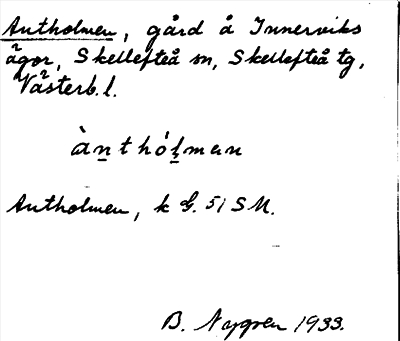 Antholmen, gård å Innerviks
ägor, Skellefteå sn, Skellefteå tg,
Västerb. l.
àntħólman
Antholmen, k G. 51 SM.
B. Nygren 1933.